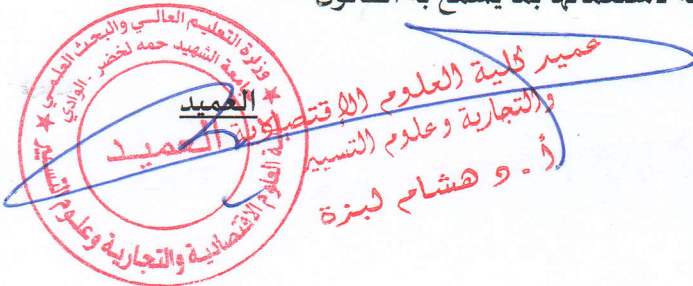 بما يسمح به القانون
العميد
وزارة التعليم العالي والبحث العلمي
جامعة الشهيد حمه لخضر - الوادي
العميد
كلية العلوم الاقتصادية والتجارية وعلوم التسيير
عميد كلية العلوم الإقتصادية
والتجارية وعلوم التسيير
أ . د هشام لبزة